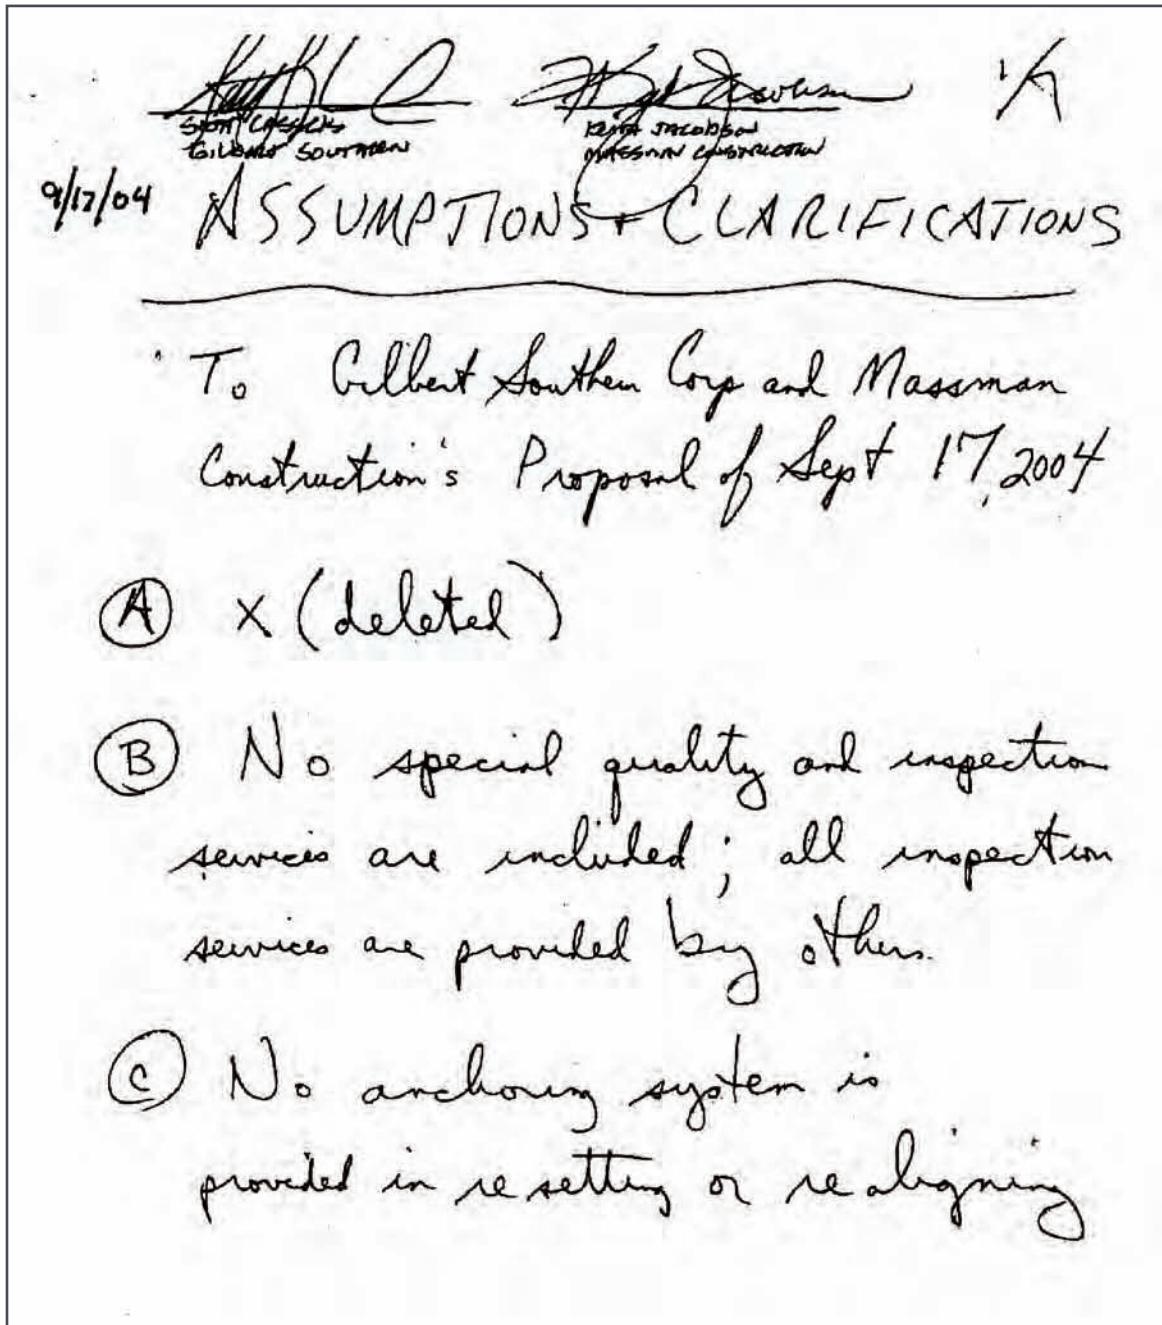 GILBERT SOUTHERN
KEITH JACOBSON
MASSMAN CONSTRUCTION
9/17/04 ASSUMPTIONS + CLARIFICATIONS
To Gilbert Southern Corp and Massman
Construction's Proposal of Sept 17, 2004
A X (deleted)
B No special quality and inspection
services are included; all inspection
services are provided by others.
C No anchoring system is
provided in resetting or realigning